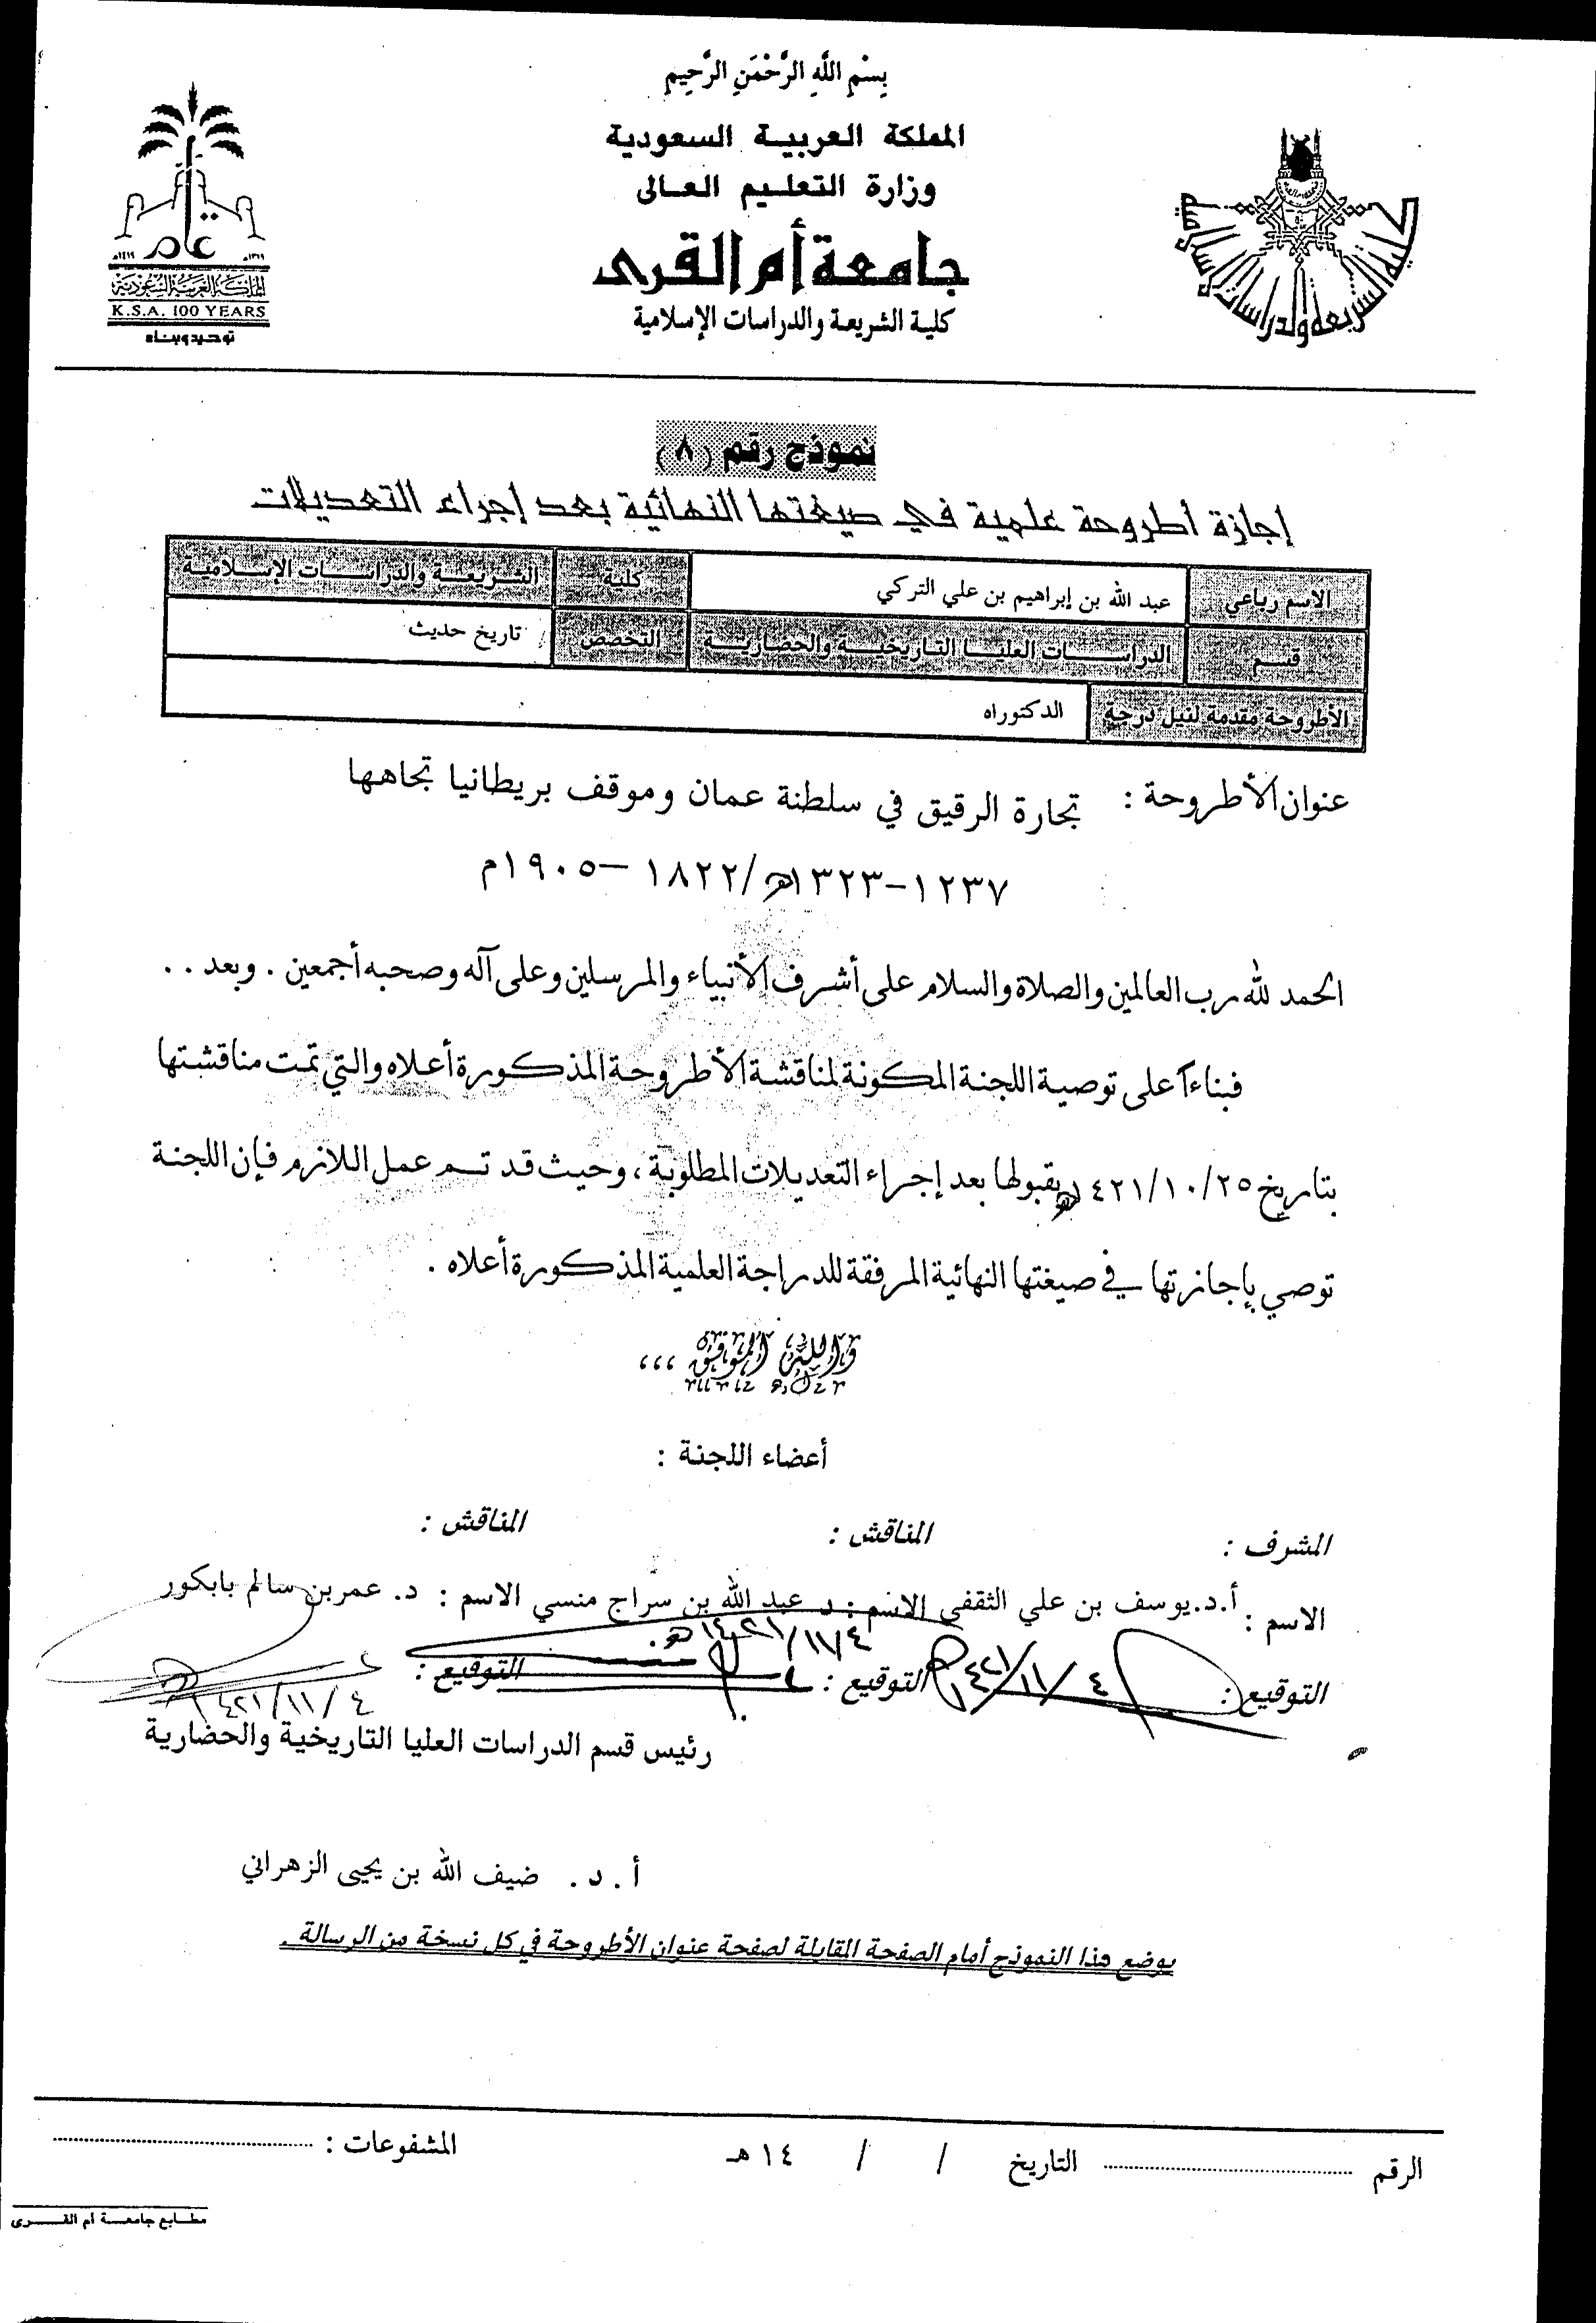 بِسْمِ اللَّهِ الرَّحْمَنِ الرَّحِيمِ
المملكة العربية السعودية
وزارة التعليم العالى
جامعة أم القرى
كلية الشريعة والدراسات الإسلامية
عام
المملكة العربية السعودية
K.S.A. 100 YEARS
توحيد وبناء
نموذج رقم (٨)
إجازة أطروحة علمية في صيغتها النهائية بعد إجراء التعديلات
الاسم رباعي عبد الله بن إبراهيم بن علي التركي كلية الشريعة والدراسات الإسلامية
قسم الدراسات العليا التاريخية والحضارية التخصص تاريخ حديث
الأطروحة مقدمة لنيل درجة الدكتوراه
عنوان الأطروحة : تجارة الرقيق في سلطنة عمان وموقف بريطانيا تجاهها
١٢٣٧-١٣٢٣هـ/١٨٢٢-١٩٠٥م
الحمد لله رب العالمين والصلاة والسلام على أشرف الأنبياء والمرسلين وعلى آله وصحبه أجمعين . وبعد . .
فبناءاً على توصية اللجنة المكونة لمناقشة الأطروحة المذكورة أعلاه والتي تمت مناقشتها
بتاريخ ١٤٢١/١٠/٢٥هـ بقبولها بعد إجراء التعديلات المطلوبة ، وحيث قد تم عمل اللازم فإن اللجنة
توصي بإجازتها في صيغتها النهائية المرفقة للدراجة العلمية المذكورة أعلاه .
والله الموفق ،،،
أعضاء اللجنة :
المشرف : المناقش : المناقش :
الاسم : أ.د.يوسف بن علي الثقفي الاسم : د عبد الله بن سراج منسي الاسم : د. عمر بن سالم بابكور
١٤٢١/١١/٤هـ
التوقيع : ١٤٢١/١١/٤ التوقيع : التوقيع :
١٤٢١/١١/٤
رئيس قسم الدراسات العليا التاريخية والحضارية
أ . د . ضيف الله بن يحيى الزهراني
يوضع هذا النموذج أمام الصفحة المقابلة لصفحة عنوان الأطروحة في كل نسخة من الرسالة .
الرقم التاريخ / / ١٤ هـ المشفوعات :
مطابع جامعة أم القرى